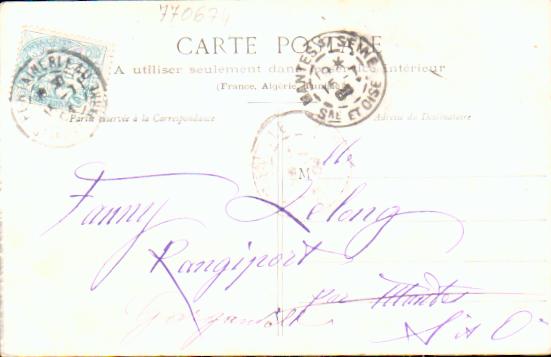 770674
CARTE POSTALE
A utiliser seulement dans le service intérieur
(France, Algérie, Tunisie)
Partie réservée à la Correspondance
Adresse du Destinataire
FONTAINEBLEAU
MANTES S. SEINE
SNE ET OISE
M lle
Fanny Lelong
Rangiport
par Mantes
S et O